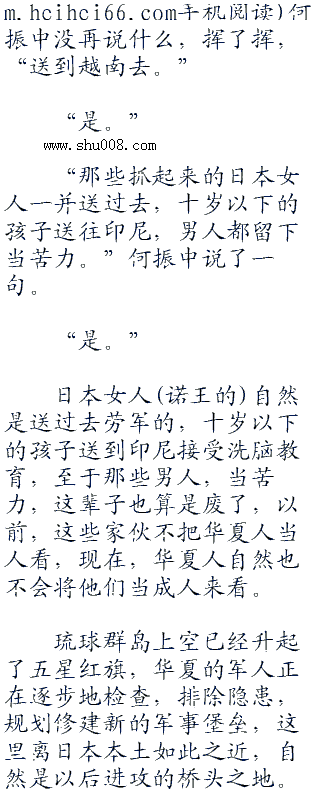 m.hcihci66.com手机阅读)何
振中没再说什么，挥了挥，
“送到越南去。”
“是。”
www.shu008.com
“那些抓起来的日本女
人一并送过去，十岁以下的
孩子送往印尼，男人都留下
当苦力。”何振中说了一
句。
“是。”
日本女人(诺王的)自然
是送过去劳军的，十岁以下
的孩子送到印尼接受洗脑教
育，至于那些男人，当苦
力，这辈子也算是废了，以
前，这些家伙不把华夏人当
人看，现在，华夏人自然也
不会将他们当成人来看。
琉球群岛上空已经升起
了五星红旗，华夏的军人正
在逐步地检查，排除隐患，
规划修建新的军事堡垒，这
里离日本本土如此之近，自
然是以后进攻的桥头之地。